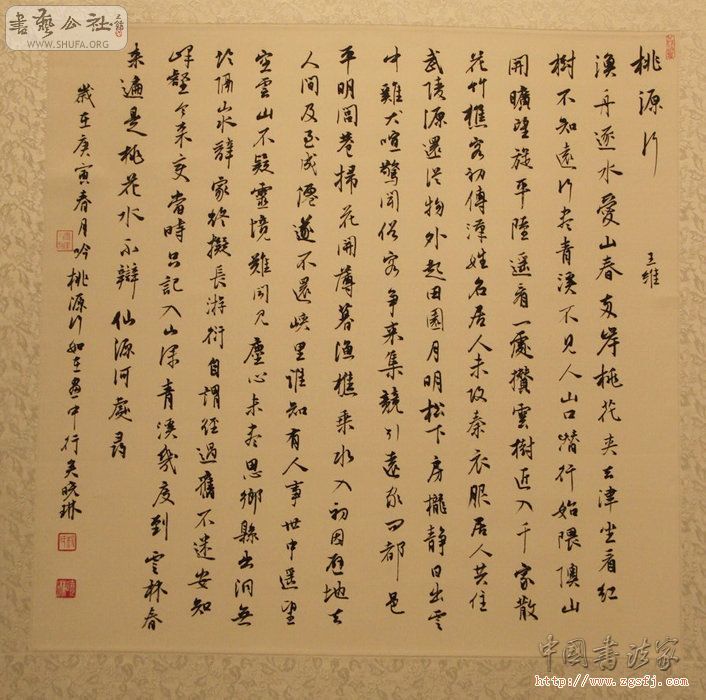 書藝公社
WWW.SHUFA.ORG
桃源行 王維
漁舟逐水愛山春夾岸桃花夾去津坐看紅
樹不知遠行盡青溪不見人山口潛行始隈隩山
開曠望旋平陸遥看一處攢雲樹近入千家散
花竹樵客初傳漢姓名居人未改秦衣服居人共住
武陵源還從物外起田園月明松下房櫳靜日出雲
中雞犬喧驚聞俗客爭來集競引還家問都邑
平明閭巷掃花開薄暮漁樵乘水入初因避地去
人間及至成僊遂不還峽裏誰知有人事世中遥望
空雲山不疑靈境難聞見塵心未盡思鄉縣出洞無
論隔山水辭家終擬長游衍自謂經過舊不迷安知
峰壑今來變當時只記入山深青溪幾度到雲林春
來遍是桃花水不辯仙源何處尋
歲在庚寅春月吟桃源行如在畫中行吳曉琳
中國書法家
http://www.zgsfj.com